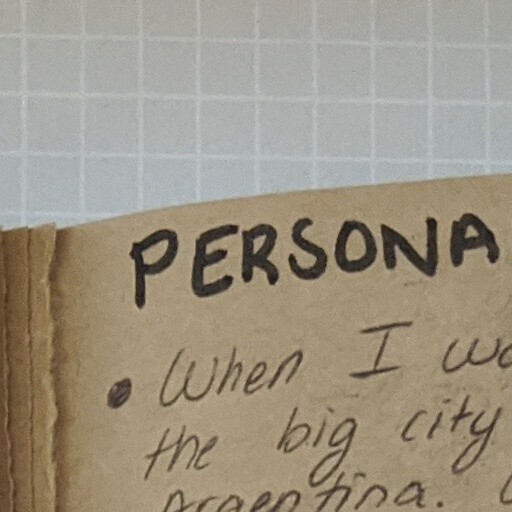 PERSONA
• When I wa
the big city
Argentina.